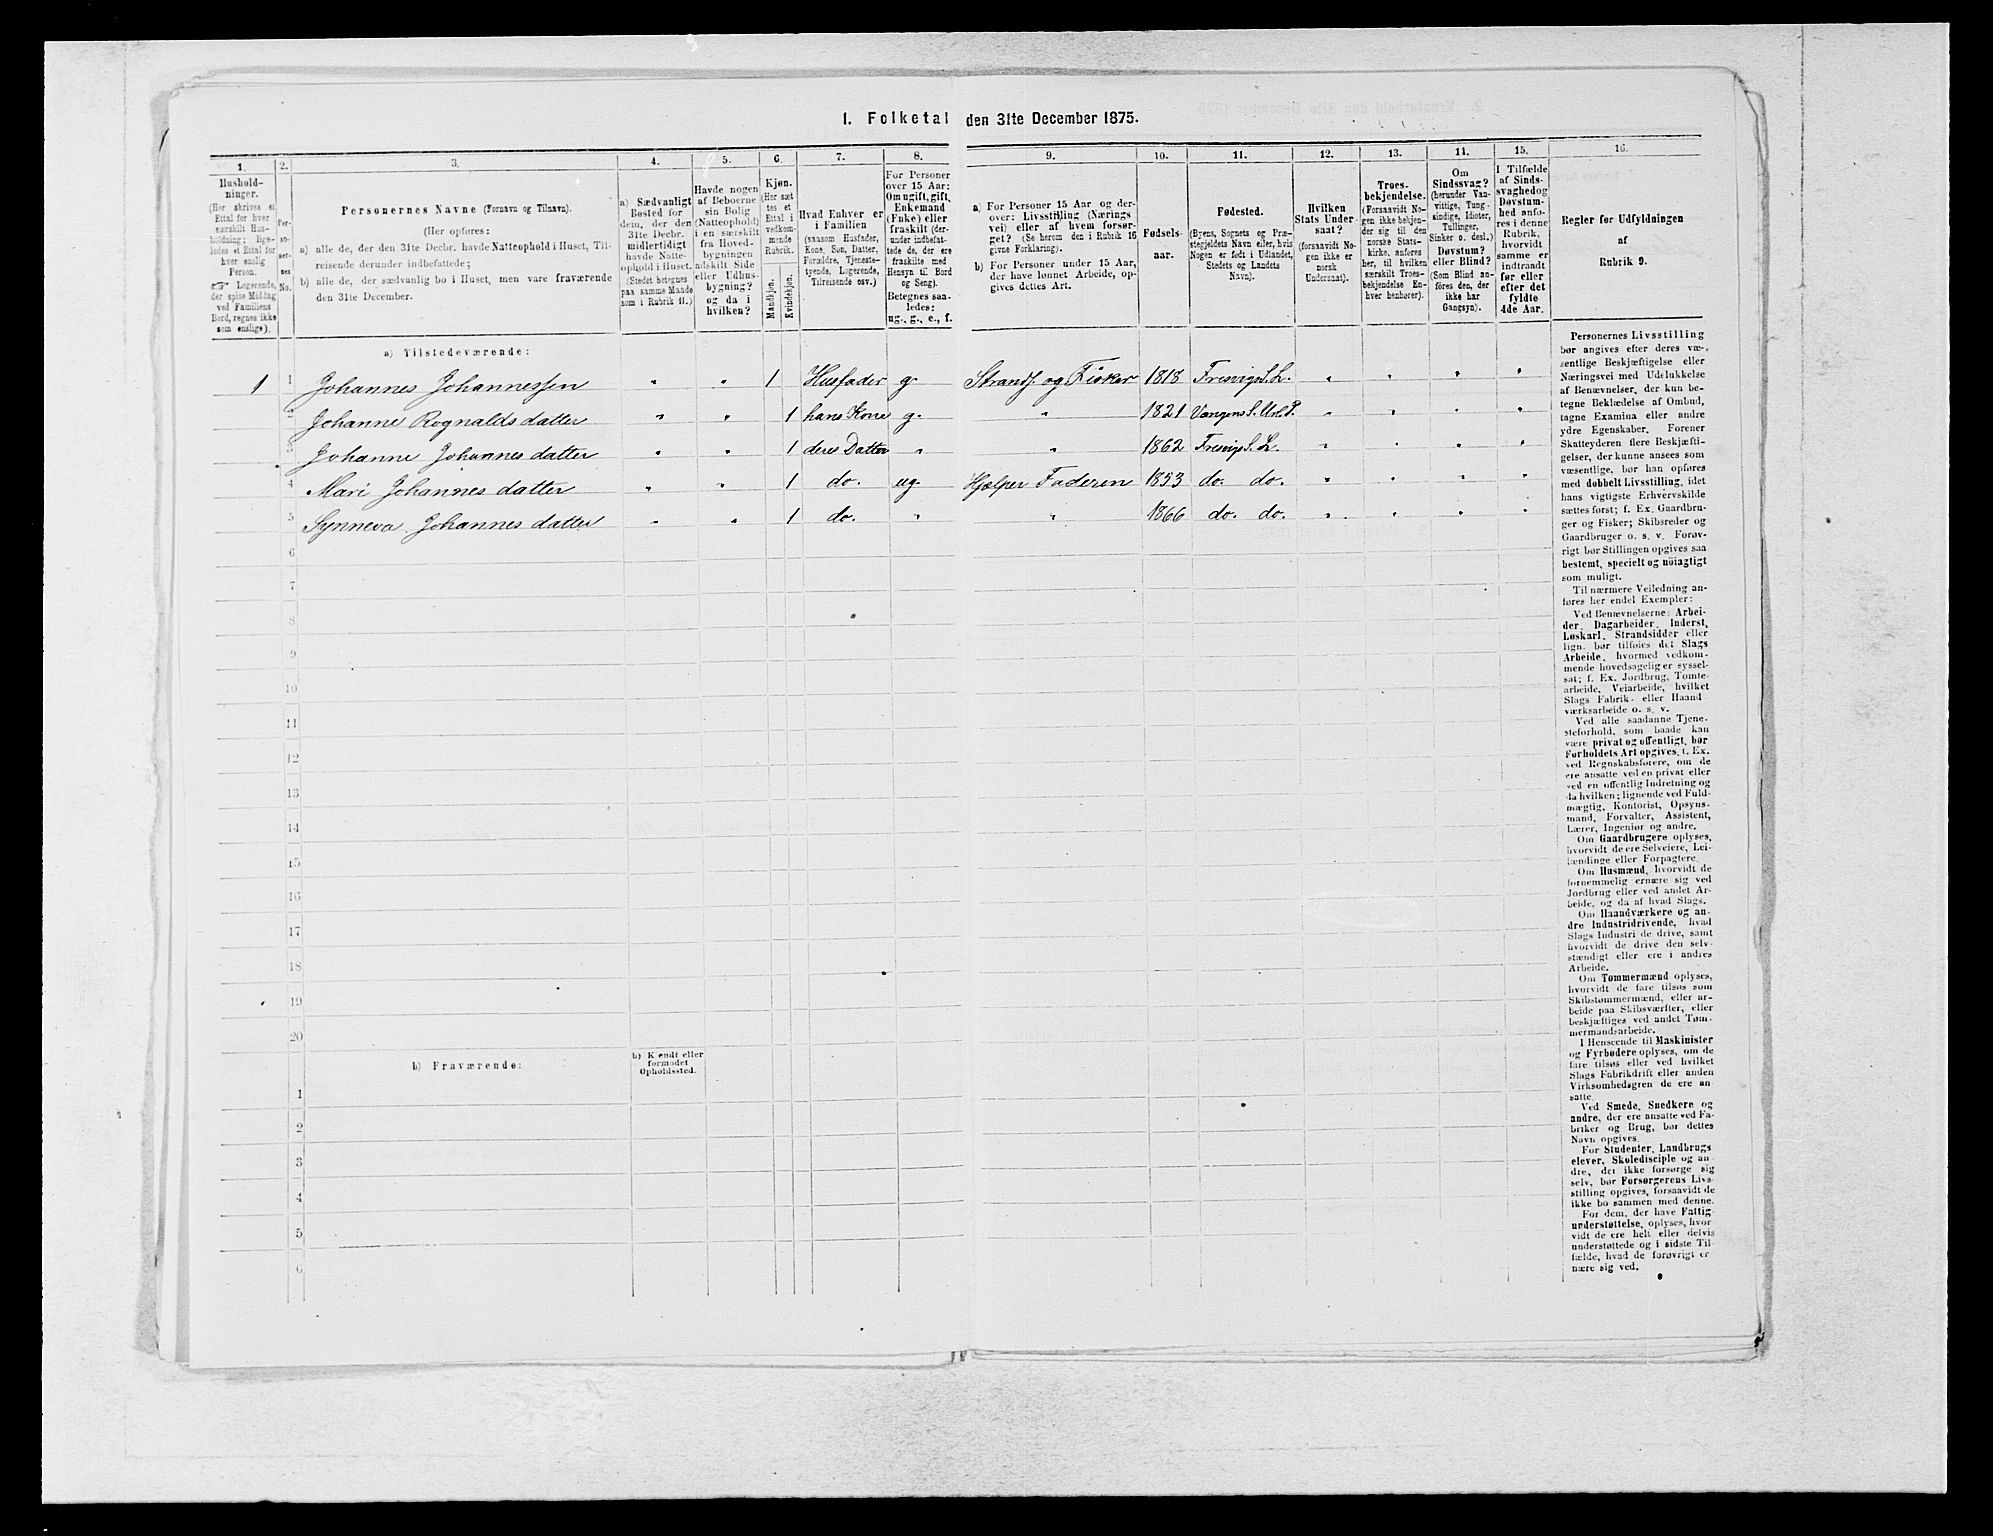 1. Folketal den 31te December 1875.
1. 2. 3. 4. 5. 6. 7. 8. 9. 10. 11. 12. 13. 14. 15. 16.
Hushold-
ninger.
(Her skrives et
Ettal for hver
særskilt Hus-
holdning; lige-
ledes et Ettal for
hver enslig
Person.
☞ Logerende,
der spise Middag
ved Familiens
Bord, regnes ikke
som enslige).
Per-
so-
ner-
nes
No.
Personernes Navne (Fornavn og Tilnavn).
(Her opføres:
a) alle de, der den 31te Decbr. havde Natteophold i Huset, Til-
reisende derunder indbefattede;
b) alle de, der sædvanlig bo i Huset, men vare fraværende
den 31te December.
a) Sædvanligt
Bosted for
dem, der den
31te Decbr.
midlertidigt
havde Natte-
ophold i Huset.
(Stedet betegnes
paa samme Maade
som i Rubrik 11.)
Havde nogen
af Beboerne
sin Bolig
(Natteophold)
i en særskilt
fra Hoved-
bygningen
adskilt Side
eller Udhus-
bygning?
og da i
hvilken?
Kjøn.
(Her sæt
tes et
Ettal i
vedkom-
mende
Rubrik.
Mandkjøn.
Kvindekjøn.
Hvad Enhver er
i Familien
(saasom Husfader,
Kone, Søn, Datter,
Forældre, Tjeneste-
tyende, Logerende,
Tilreisende osv.)
For Personer
over 15 Aar:
Om ugift, gift,
Enkemand
(Enke) eller
fraskilt (der-
under indbefat-
tede de, der ere
fraskilte med
Hensyn til Bord
og Seng).
Betegnes saa-
ledes:
ug., g., e., f.
a) For Personer 15 Aar og der-
over: Livsstilling (Nærings
vei) eller af hvem forsør-
get? (Se herom den i Rubrik 16
givne Forklaring).
b) For Personer under 15 Aar,
der have lønnet Arbeide, op-
gives dettes Art.
Fødsels-
aar.
Fødested.
(Byens, Sognets og Præ-
stegjeldets Navn eller, hvis
Nogen er født i Udlandet,
Stedets og Landets
Navn).
Hvilken
Stats Under-
saat?
(forsaavidt No-
gen ikke er
norsk
Undersaat).
Troes-
bekjendelse.
(Forsaavidt No-
gen ikke bekjen-
der sig til den
norske Stats-
kirke, anføres
her, til hvilken
særskilt Troes-
bekjendelse En-
hver henhører).
Om
Sindssvag?
(herunder Van-
vittige, Tung-
sindige, Idioter,
Tullinger,
Sinker o. desl.)
Døvstum?
eller Blind?
(Som Blind an-
føres den, der
ikke har
Gangsyn).
I Tilfælde
af Sinds-
svaghed og
Døvstum-
hed anfø-
res i denne
Rubrik,
hvorvidt
samme er
indtraadt
før eller
efter det
fyldte
4de Aar.
Regler for Udfyldningen
af
Rubrik 9.
a) Tilstedeværende:
1 1 Johannes Johannessen " " 1 Husfader g. Strands. og Fisker 1818 Fresvigs S. L. " " " "
2 Johanne Rognaldsdatter " " 1 hans Kone g. " 1821 Vangens S. Url. P. " " " "
3 Johanne Johannesdatter " " 1 deres Datter " " 1862 Fresvigs S. L. " " " "
4 Mari Johannesdatter " " 1 do. ug Hjælper Faderen 1853 do. do. " " " "
5 Synneva Johannesdatter " " 1 do. " " 1866 do. do. " " " "
6
7
8
9
10
11
12
13
14
15
16
17
18
19
20
b) Fraværende:
b) Kjendt eller
formodet
Opholdssted.
1
2
3
4
5
6
Personernes Livsstilling
bør angives efter deres væ-
sentlige Beskjæftigelse eller
Næringsvei med Udelukkelse
af Benævnelser, der kun be-
tegne Beklædelse af Ombud,
tagne Examina eller andre
ydre Egenskaber. Forener
Skatteyderen flere Beskjæfti-
gelser, der kunne ansees som
væsentlige, bør han opføres
med dobbelt Livsstilling, idet
hans vigtigste Erhvervskilde
sættes først; f. Ex. Gaardbru-
ger og Fisker; Skibsreder og
Gaardbruger o. s. v. Forøv-
rigt bør Stillingen opgives saa
bestemt, specielt og nöiagtigt
som muligt.
Til nærmere Veiledning an-
føres her endel Exempler:
Ved Benævnelserne: Arbei-
der, Dagarbeider, Inderst,
Løskarl, Strandsidder eller
lign. bør tilføies det Slags
Arbeide, hvormed vedkom-
mende hovedsagelig er syssel-
sat; f. Ex. Jordbrug, Tomte-
arbeide, Veiarbeide, hvilket
Slags Fabrik- eller Haand
værksarbeide o. s. v.
Ved alle saadanne Tjene-
steforhold, som baade kan
være privat og offentligt, bør
Forholdets Art opgives, f. Ex.
ved Regnskabsførere, om de
ere ansatte ved en privat eller
ved en offentlig Indretning og
da hvilken; lignende ved Fuld-
mægtig, Kontorist, Opsyns-
mand, Forvalter, Assistent,
Lærer, Ingeniør og andre.
Om Gaardbrugere oplyses,
hvorvidt de ere Selveiere, Lei-
lændinge eller Forpagtere.
Om Husmænd, hvorvidt de
fornemmelig ernære sig ved
Jordbrug eller ved andet Ar-
beide, og da af hvad Slags.
Om Haandværkere og an-
dre Industridrivende, hvad
Slags Industri de drive, samt
hvorvidt de drive den selv-
stændigt eller ere i andres
Arbeide.
Om Tømmermænd oplyses,
hvorvidt de fare tilsøs som
Skibstømmermænd, eller ar-
beide paa Skibsværfter, eller
beskjæftiges ved andet Tøm-
mermandsarbeide.
I Henseende til Maskinister
og Fyrbødere oplyses, om de
fare tilsøs eller ved hvilket
Slags Fabrikdrift eller anden
Virksomhedsgren de ere an-
satte.
Ved Smede, Snedkere og
andre, der ere ansatte ved Fa-
briker og Brug, bør dettes
Navn opgives.
For Studenter, Landbrugs
elever, Skoledisciple og an-
dre, der ikke forsørge sig
selv, bør Forsørgerens Livs-
stilling opgives, forsaavidt de
ikke bo sammen med denne.
For dem, der have Fattig-
understøttelse, oplyses, hvor
vidt de ere helt eller delvis
understøttede og i sidste Til-
fælde, hvad de forøvrigt er
nære sig ved.